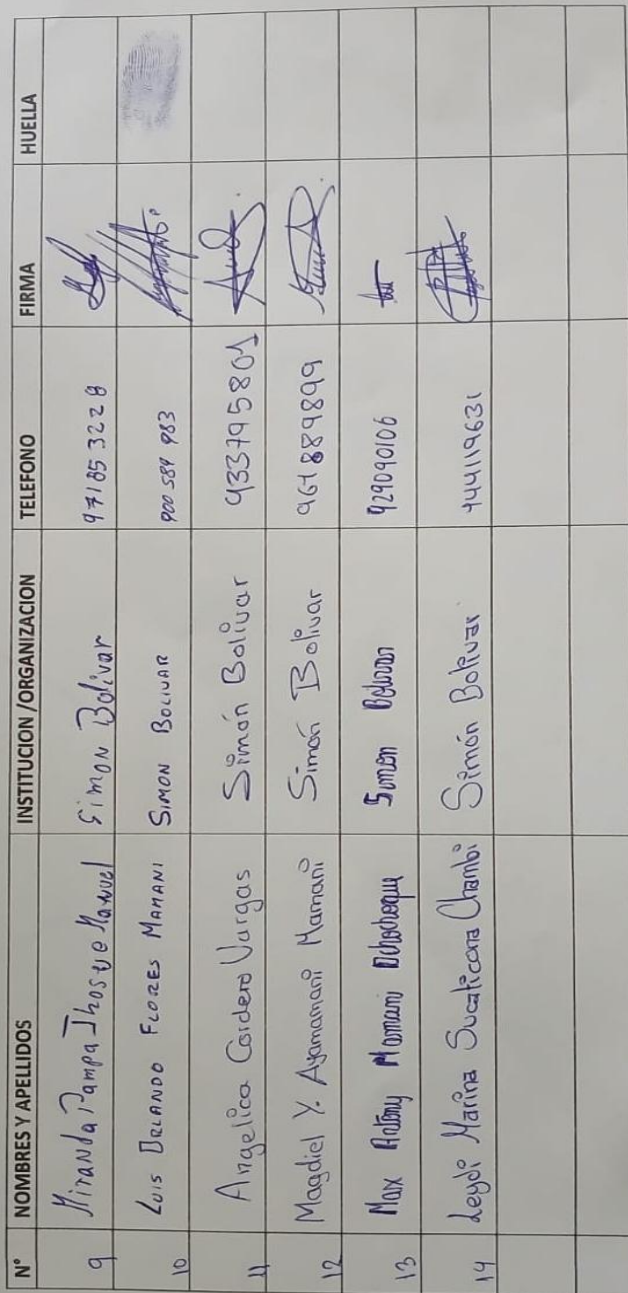 N° NOMBRES Y APELLIDOS INSTITUCION /ORGANIZACION TELEFONO FIRMA HUELLA
9 Miranda Pampa Jhosue Manuel Simon Bolivar 971853228
10 LUIS ORLANDO FLORES MAMANI SIMON BOLIVAR 900 589 983
11 Angelica Cordero Vargas Simón Bolivar 933795801
12 Magdiel Y. Ayamamani Mamani Simón Bolivar 967889899
13 Max Antony Mamani Simon Bolivar 929090106
14 Leydi Marina Sucaticona Chambi Simón Bolivar 944119631